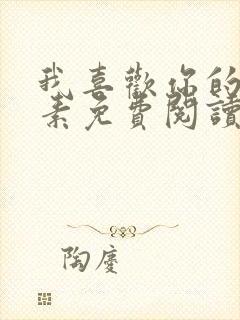 我喜歡你的
素免費閱讀
陶慶